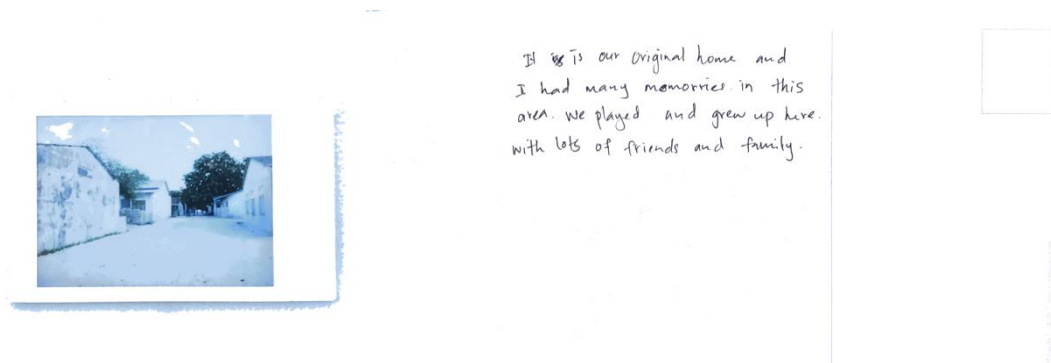 It is is our original home and
I had many memorries in this
area. We played and grew up here.
with lots of friends and family.